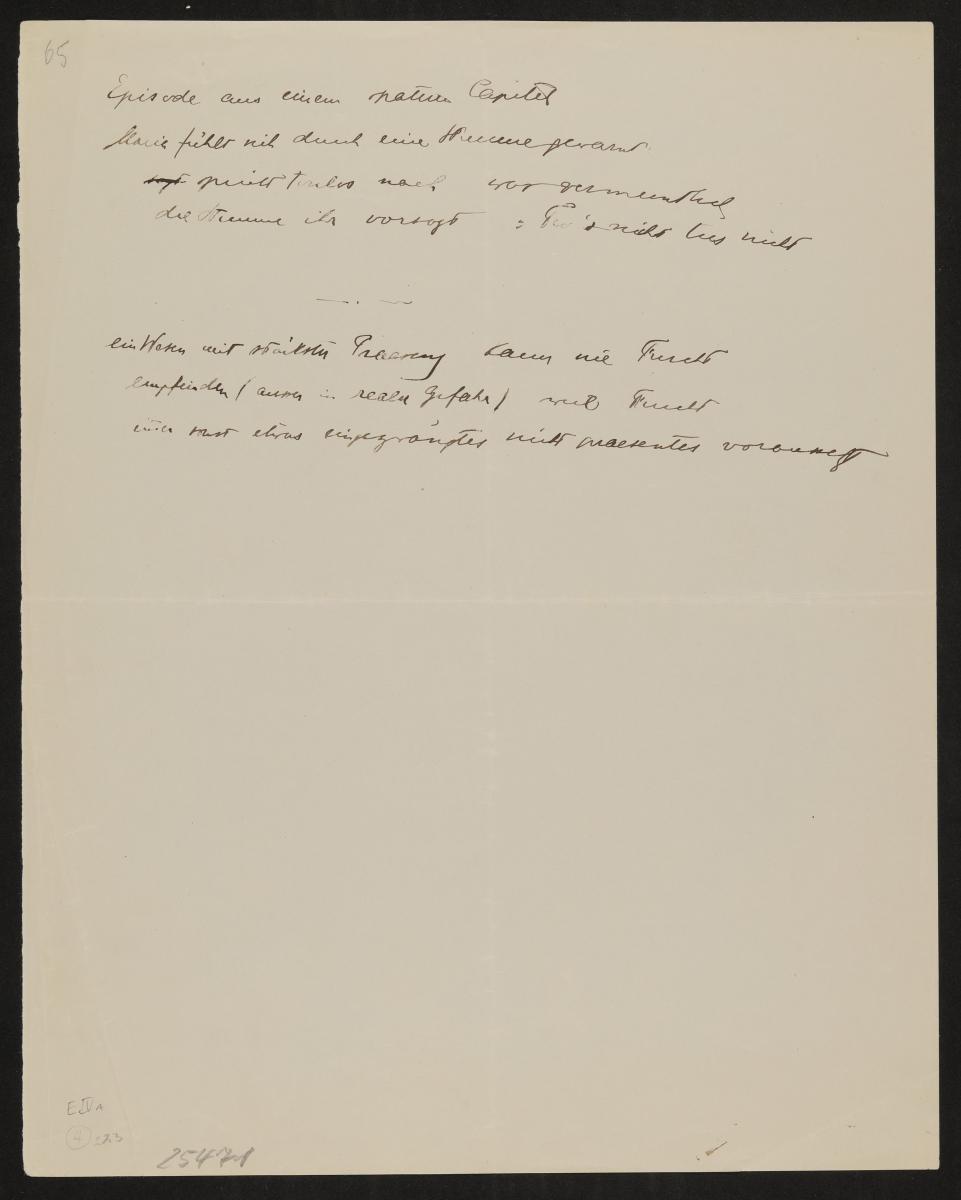 65
Episode aus einem spätern Capitel
Maria fühlt sich durch eine Stimme gewarnt.
sagt spricht tonlos nach was vermeintlich
die Stimme ihr vorsagt : Thu's nicht tus nicht
ein Wesen mit stärkster Praesenz kann nie Furcht
empfinden (ausser in realer Gefahr) weil Furcht
immer sonst etwas nicht praesentes voraussetzt
E IV A
4
25471